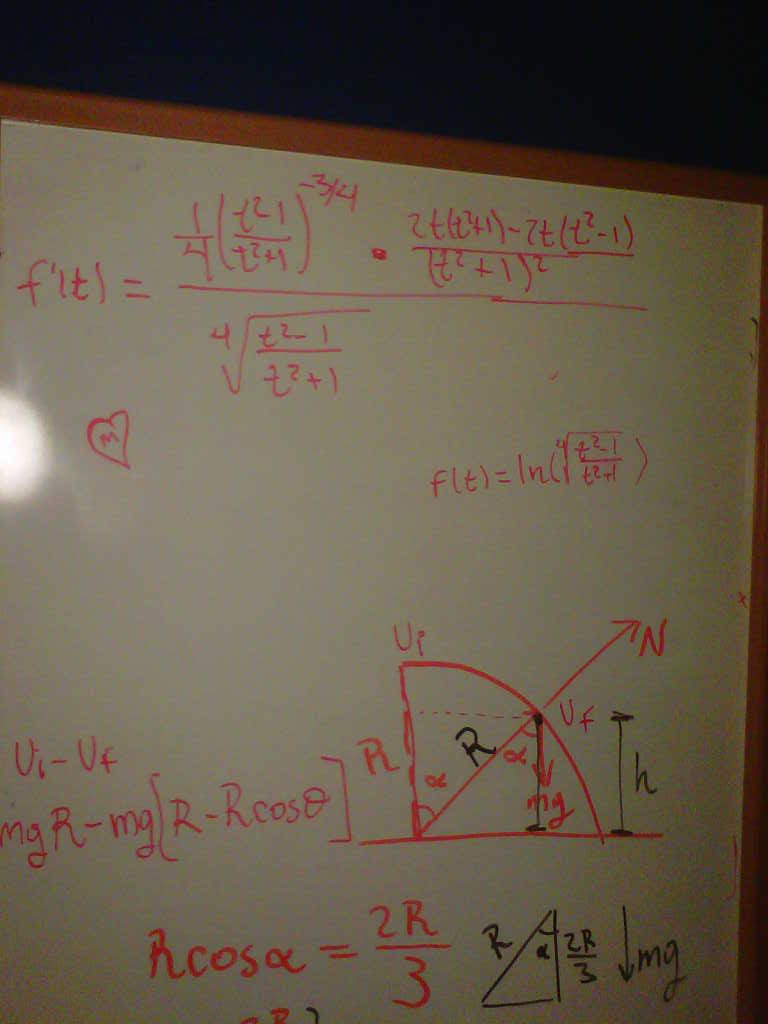 f'(t) = \frac{\frac{1}{4}\left(\frac{t^2-1}{t^2+1}\right)^{-3/4} \cdot \frac{2t(t^2+1)-2t(t^2-1)}{(t^2+1)^2}}{\sqrt[4]{\frac{t^2-1}{t^2+1}}}
M
f(t) = ln(\sqrt[4]{\frac{t^2-1}{t^2+1}})
Ui
N
Uf
R
R
α
α
mg
h
Ui - Uf
mgR - mg[R - Rcosθ]
Rcosα = \frac{2R}{3}
R
α
\frac{2R}{3}
↓mg